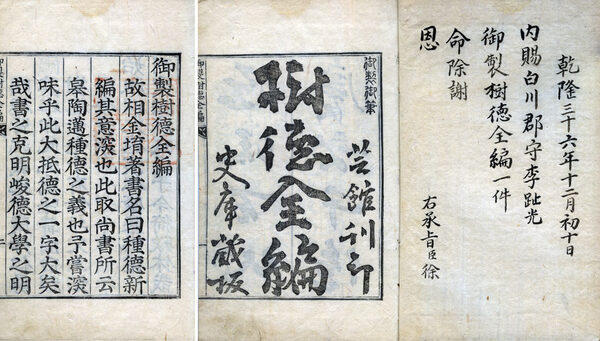 乾隆三十六年十二月初十日
內賜白川郡守李趾光
御製樹德全編一件
命除謝
恩
右承旨臣徐
御製御筆
芸館刊印
樹德全編
史庫藏板
御製樹德全編
故相金堉著書名曰種德新
編其意深也此取尚書所云
皋陶邁種德之義也予嘗深
味乎此大抵德之一字大矣
哉書之克明峻德大學之明